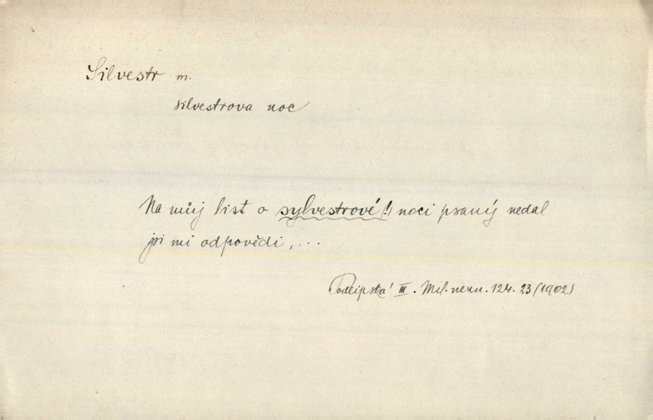 Silvestr m.
silvestrova noc
Na můj list o sylvestrové (!) noci psaný nedal
jsi mi odpovědi, ...
Podlipská III. Mel. nenu. 124. 23 (1902)